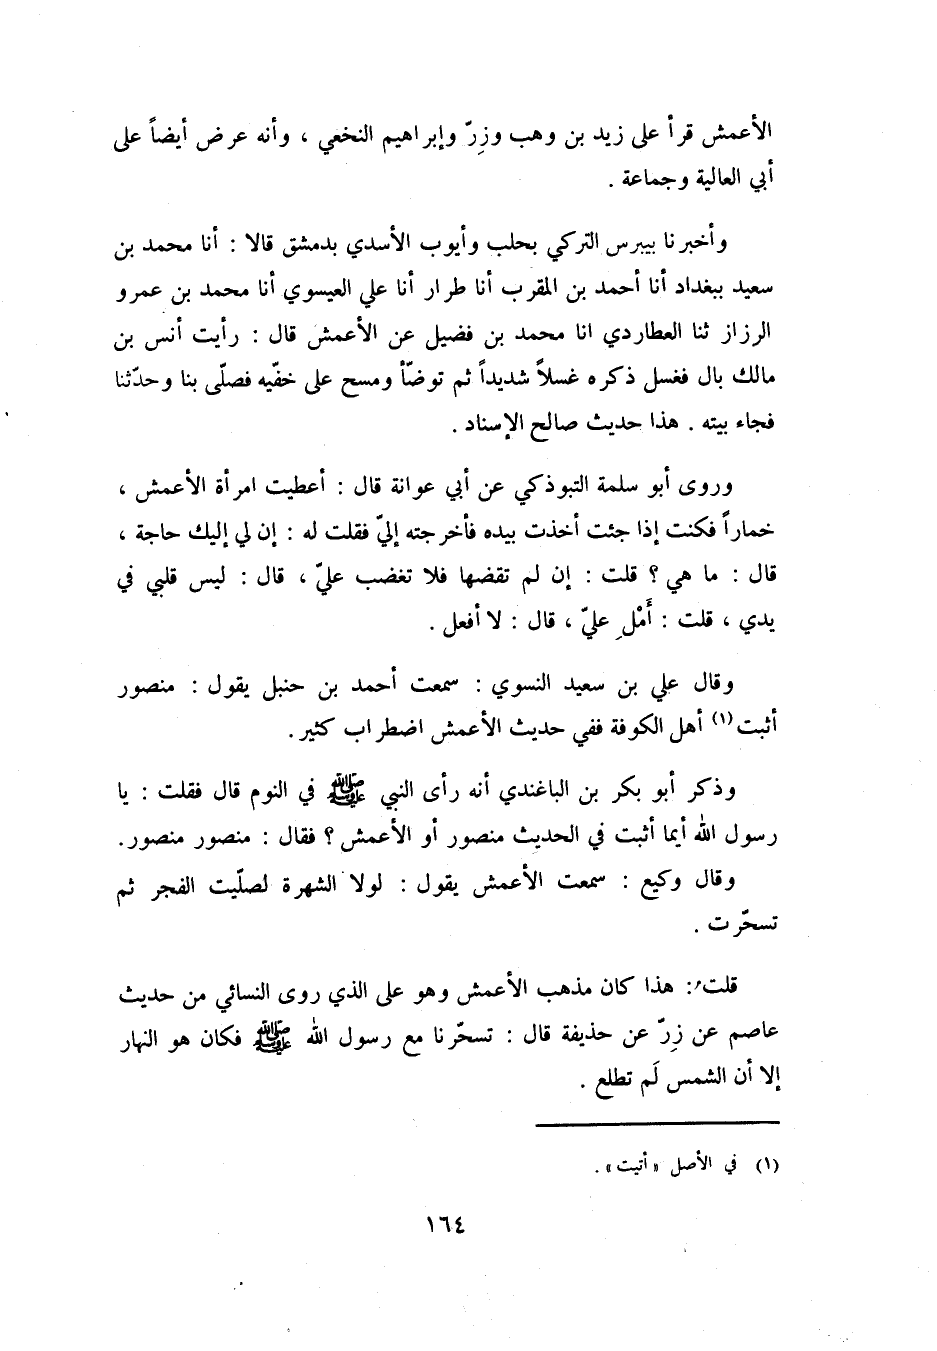 الأعمش قرأ على زيد بن وهب وزِرّ وإبراهيم النخعي ، وأنه عرض أيضاً على
أبي العالية وجماعة .
وأخبرنا بيبرس التركي بحلب وأيوب الأسدي بدمشق قالا : أنا محمد بن
سعيد ببغداد أنا أحمد بن المقرب أنا طرار أنا علي العيسوي أنا محمد بن عمرو
الرزاز ثنا العطاردي انا محمد بن فضيل عن الأعمش قال : رأيت أنس بن
مالك بال فغسل ذكره غسلاً شديداً ثم توضّأ ومسح على خفّيه فصلّى بنا وحدّثنا
فجاء بيته . هذا حديث صالح الإسناد .
وروى أبو سلمة التبوذكي عن أبي عوانة قال : أعطيت امرأة الأعمش ،
خماراً فكنت إذا جئت أخذت بيده فأخرجته إليّ فقلت له : إن لي إليك حاجة ،
قال : ما هي ؟ قلت : إن لم تقضها فلا تغضب عليّ ، قال : ليس قلبي في
يدي ، قلت : أَمْلِ عليّ ، قال : لا أفعل .
وقال علي بن سعيد النسوي : سمعت أحمد بن حنبل يقول : منصور
أثبت (١) أهل الكوفة ففي حديث الأعمش اضطراب كثير .
وذكر أبو بكر بن الباغندي أنه رأى النبي ﷺ في النوم قال فقلت : يا
رسول الله أيما أثبت في الحديث منصور أو الأعمش ؟ فقال : منصور منصور.
وقال وكيع : سمعت الأعمش يقول : لولا الشهرة لصلّيت الفجر ثم
تسحّرت .
قلت : هذا كان مذهب الأعمش وهو على الذي روى النسائي من حديث
عاصم عن زِرّ عن حذيفة قال : تسحّرنا مع رسول الله ﷺ فكان هو النهار
إلا أن الشمس لَم تطلع .
(١) في الأصل «أتيت» .
١٦٤